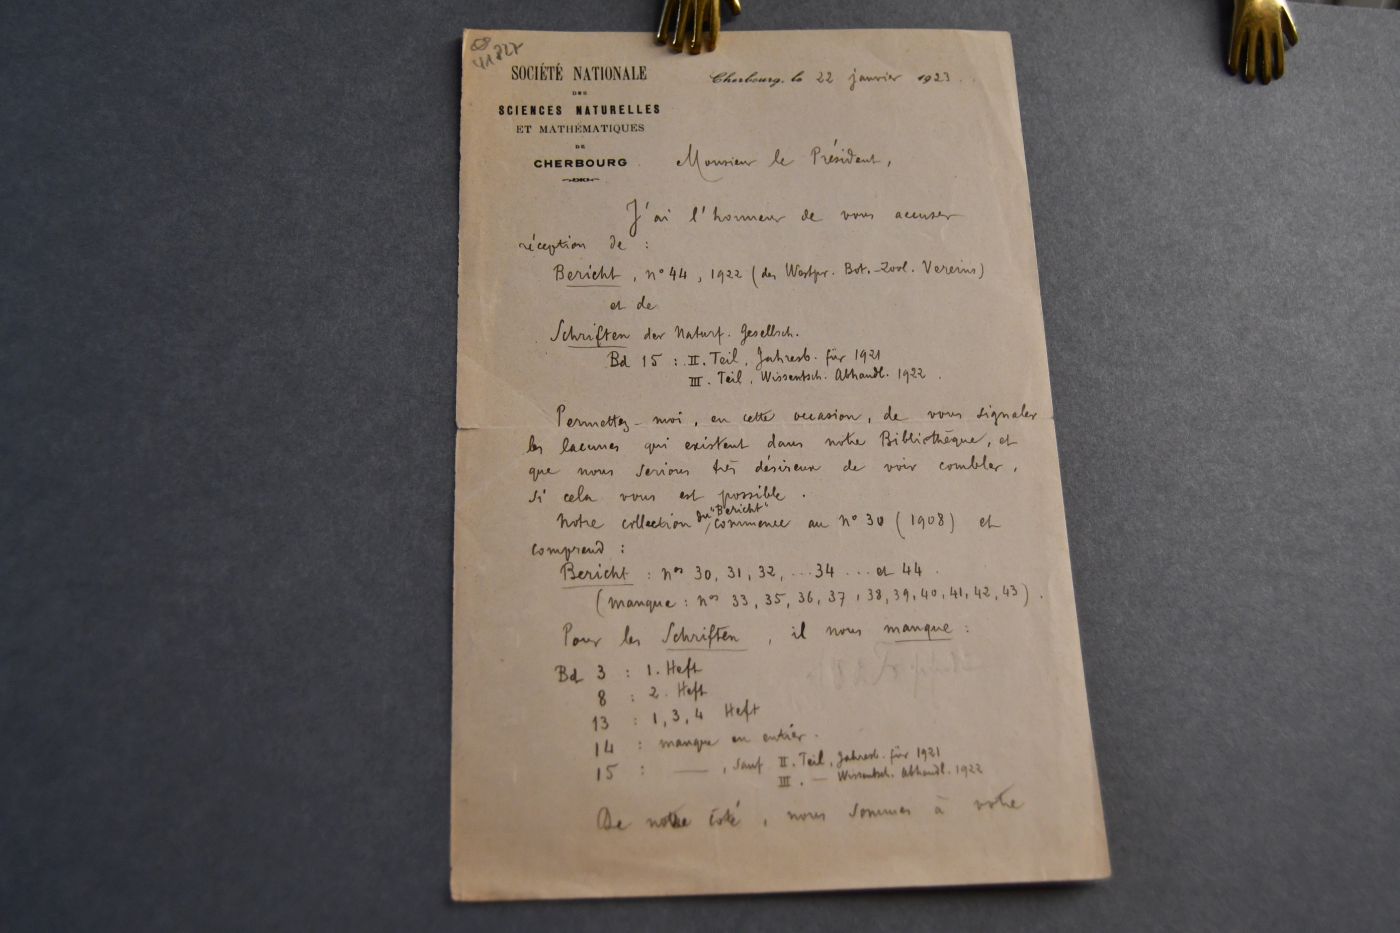 SOCIÉTÉ NATIONALE
DES
SCIENCES NATURELLES
ET MATHÉMATIQUES
DE
CHERBOURG
Cherbourg, le 22 janvier 1923.
Monsieur le Président,
J'ai l'honneur de vous accuser
réception de :
Bericht, n° 44, 1922 (des Westpr. Bot.-Zool. Vereins)
et de
Schriften der Naturf. Gesellsch.
Bd 15 : II. Teil, Jahresb. für 1921
III. Teil, Wissentsch. Abhandl. 1922.
Permettez-moi, en cette occasion, de vous signaler
les lacunes qui existent dans notre Bibliothèque, et
que nous serions très désireux de voir combler,
si cela vous est possible.
Notre collection du "Bericht", commence au n° 30 (1908) et
comprend :
Bericht : nos 30, 31, 32, ... 34 ... et 44.
(manque : nos 33, 35, 36, 37, 38, 39, 40, 41, 42, 43).
Pour les Schriften, il nous manque :
Bd 3 : 1. Heft
8 : 2. Heft
13 : 1, 3, 4 Heft
14 : manque en entier.
15 : — , sauf II. Teil, Jahresb. für 1921
III. — Wissentsch. Abhandl. 1922
De notre côté, nous sommes à votre